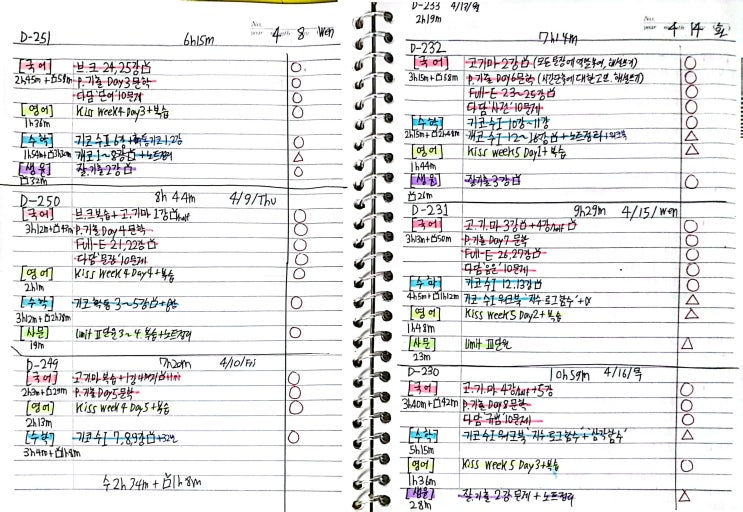 D-251 6h15m 4 8 Wen
[국어] 브.크 24,25강
2h45m+58m P.기출 Day3 문학
다담 '단어' 10문제
[영어] Kiss Week4 Day3+복습
1h36m
[수학] 기코 수Ⅱ 6강
1h54m+ 개코 1~8강+노트정리
[생윤] 잘.기출 2강
32m
D-250 8h 44m 4/9/Thu
[국어] 브.크복습+고.기마 1강 half
3h12m+47m P.기출 Day4 문학
Full-E 21,22강
다담 '문장' 10문제
[영어] Kiss Week4 Day4+복습
2h1m
[수학] 기코 3~5강
3h12m+2h38m
[사문] Limit Ⅱ단원 3~4 복습+노트정리
19m
D-249 7h20m 4/10/Fri
[국어] 고.기마 복습+1강
2h3m+29m P.기출 Day5 문학
[영어] Kiss Week4 Day5+복습
2h13m
[수학] 기코 수Ⅰ 7,8,9강+32번
3h4m+1h8m
수 2h34m+1h8m
D-233 4/13/월
2h19m
No.
4 14 화
D-232 7h14m
[국어] 고.기마 2강
3h15m+58m P.기출 Day6 문학
Full-E 23~25강
다담 '시간' 10문제
[수학] 기코 수Ⅰ 10강~11강
2h15m+2h48m 개코 수Ⅰ 12~18강+노트정리
[영어] Kiss Week5 Day1+복습
1h44m
[생윤] 잘.기출 3강
26m
D-231 9h29m 4/15/Wen
[국어] 고.기.마 3강+4강 half
3h13m+50m P.기출 Day7 문학
Full-E 26,27강
다담 '음운' 10문제
[수학] 기코 수Ⅰ 12,13강
4h5m+1h12m 기코 수Ⅰ 워크북 '지수로그함수'+α
[영어] Kiss Week5 Day2+복습
1h48m
[사문] Limit Ⅲ단원
23m
D-230 10h59m 4/16/목
[국어] 고.기.마 4강 half+5강
3h40m+42m P.기출 Day8 문학
다담 '규범' 10문제
[수학] 기코 수Ⅰ 워크북 '지수로그함수'+'삼각함수'
5h15m
[영어] Kiss Week5 Day3+복습
1h36m
[생윤] 잘.기출 2강 문제+노트정리
28m